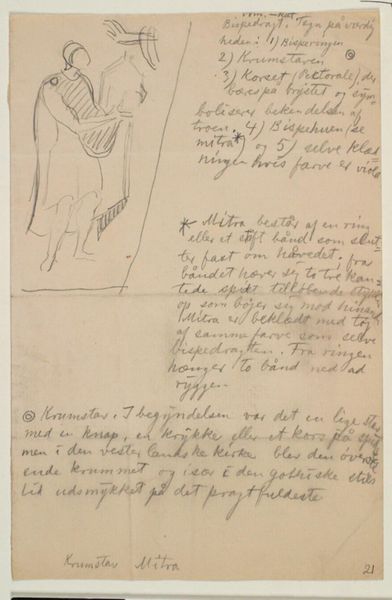 rom.-kat.
Bispedragt. Tegn på værdig
heden: 1) Bisperingen
2) Krumstaven ◎
3) Korset (Pectorale), der
bæres på brystet og sym-
boliserer bekendelsen af
troen. 4) Bispehuen (se
mitra*) og 5) selve klæd
ningen hvis farve er violet
* Mitra består af en ring
eller et stift bånd som slut-
ter fast om hovedet, fra
båndet hæver sig to tre kan-
tede spidt tilløbende stykker
op som bøjer sig mod hinand
Mitra er beklædt med tøj
af samme farve som selve
bispedragten. Fra ringen
hænger to bånd ned ad
ryggen.
◎ Krumstav. I begyndelsen var det en lige stav
med en knap, en krykke eller et kors på spid
men i den vesterlandske kirke blev den øverste
ende krummet og især i den gothiske stils
tid udsmykket på det pragtfuldeste
Krumstav Mitra
21